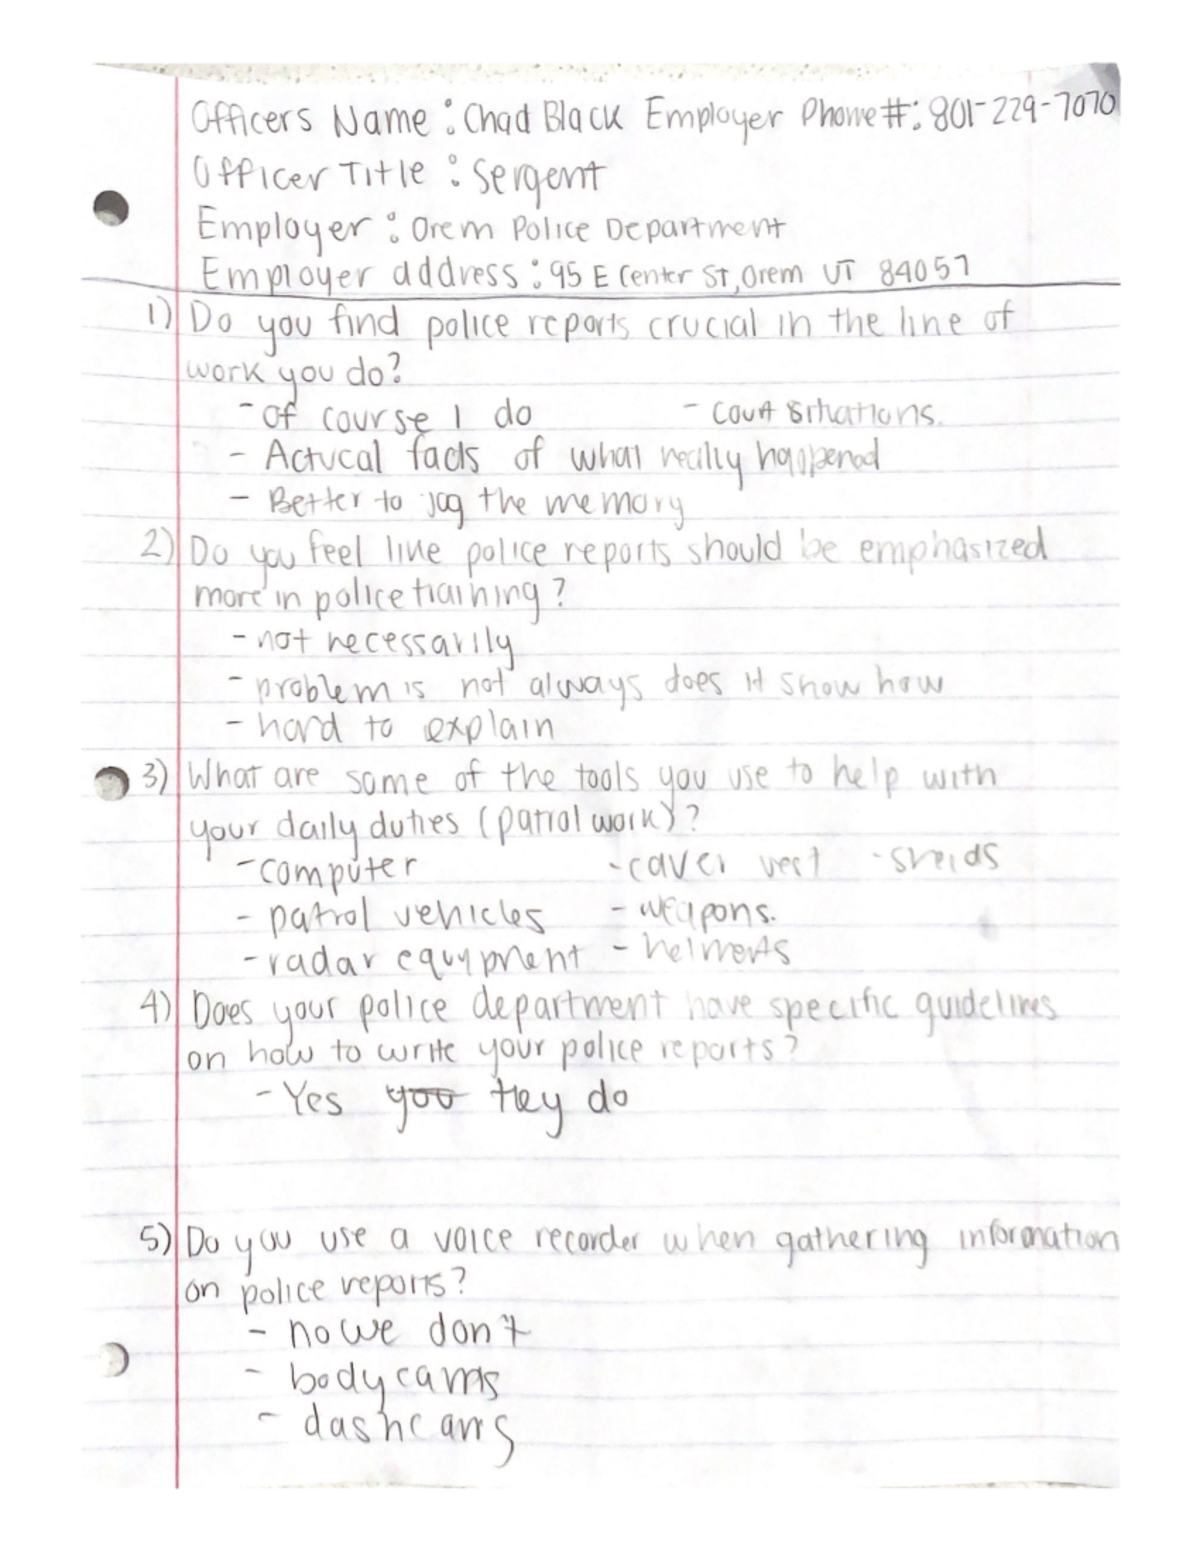 Officers Name: Chad Black Employer Phone#: 801-229-7070
Officer Title: Sergent
Employer: Orem Police Department
Employer address: 95 E Center St, Orem UT 84057
1) Do you find police reports crucial in the line of
work you do?
- Of course I do - court situations.
- Actucal facts of what really happened
- Better to jog the memory
2) Do you feel like police reports should be emphasized
more in police training?
- not necessarily
- problem is not always does it show how
- hard to explain
3) What are some of the tools you use to help with
your daily duties (patrol work)?
- computer - vest - sheids
- patrol vehicles - weapons.
- radar equypment - helmets
4) Does your police department have specific guidelines
on how to write your police reports?
- Yes you they do
5) Do you use a voice recorder when gathering information
on police reports?
- no we don't
- body cams
- dashcams